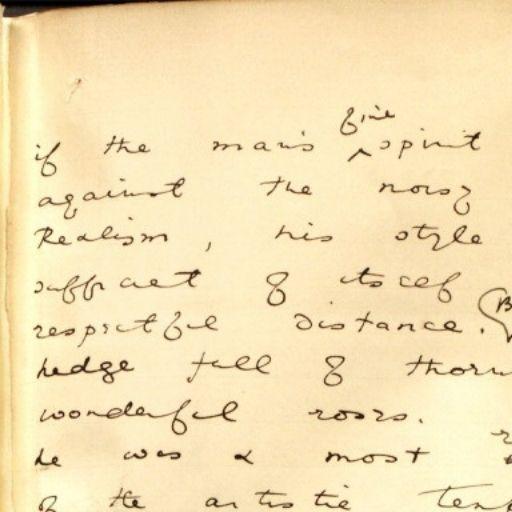 fine
if the man's ^ spirit
against the noisy
Realism, his style
suffract of itself
respectful distance. (B
hedge full of thorn
wonderful roses.
he was a most
of the artistic temp